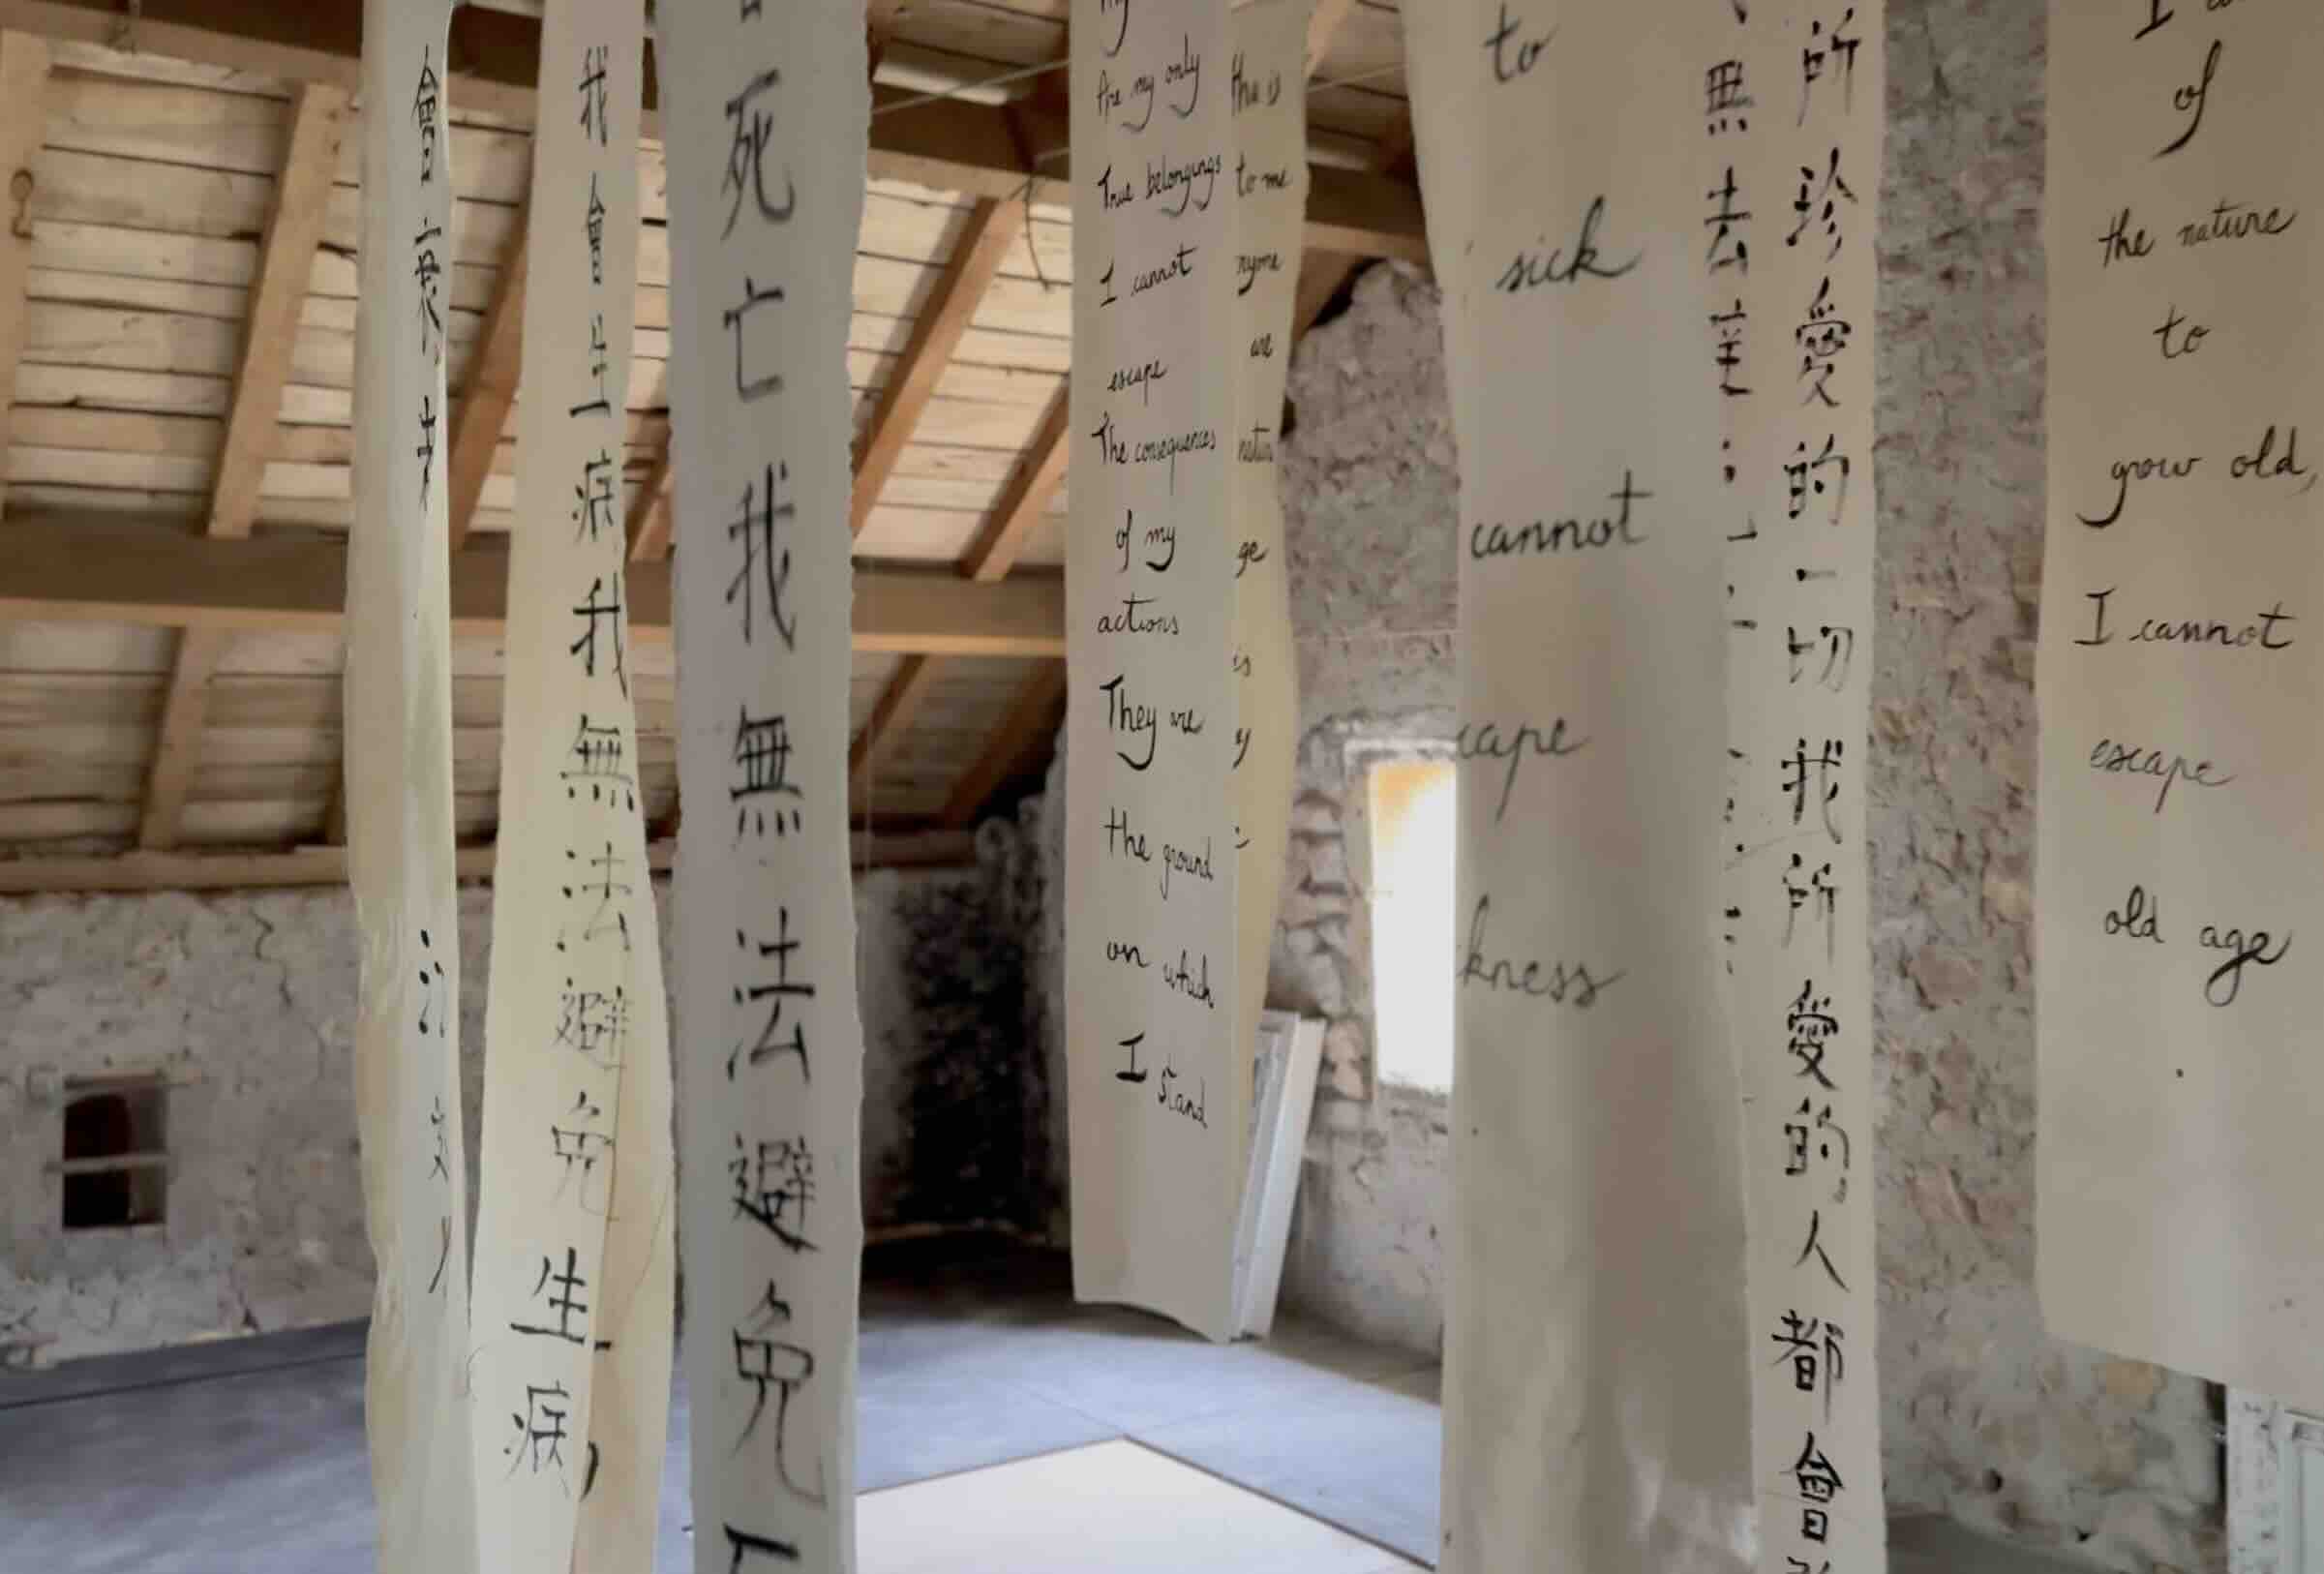 會衰老
我會生病我無法避免生病
死亡我無法避免
my
Are my only
True belongings
I cannot
escape
The consequences
of my
actions
They are
the ground
on which
I stand
to me
are
is
to
sick
cannot
無法
所珍愛的一切我所愛的人都會
of
the nature
to
grow old,
I cannot
escape
old age